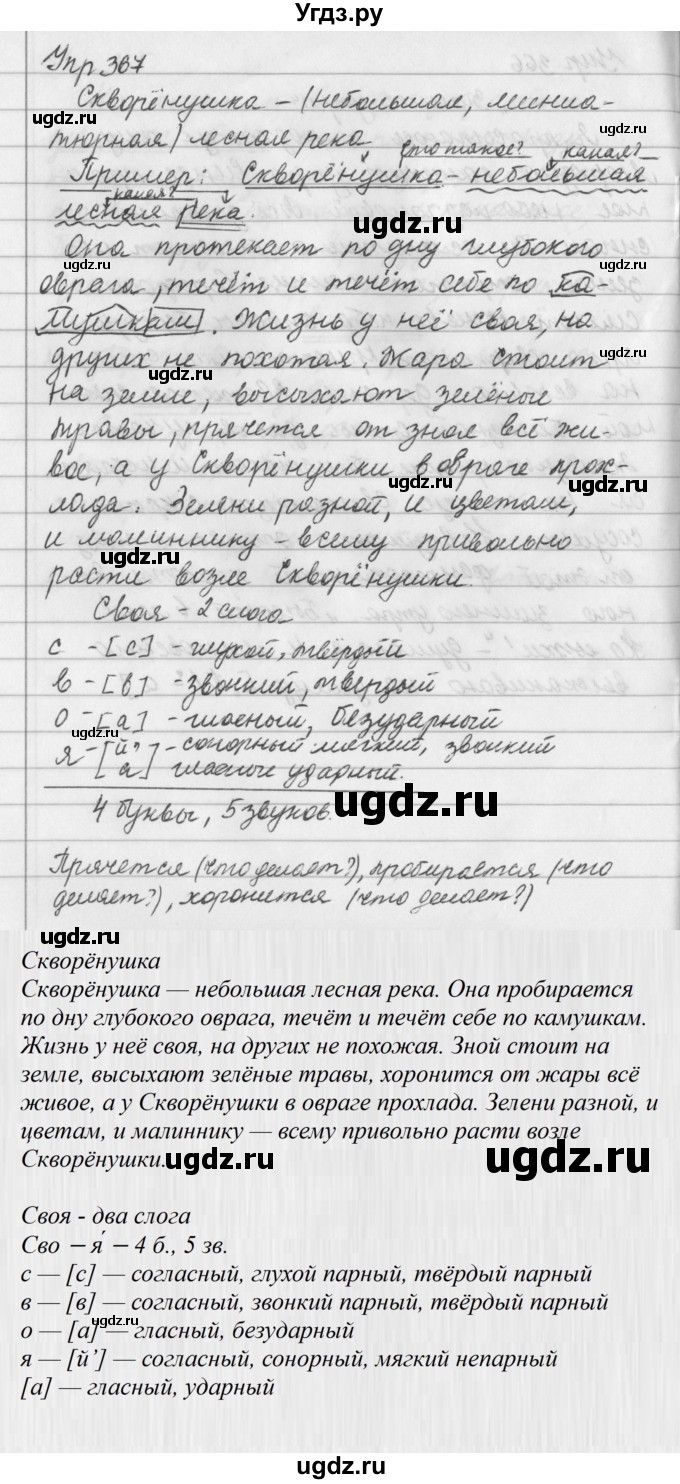 Угдз.ру
Упр 367
Скворёнушка – (небольшая, миниа-
тюрная) лесная река
что такое? какая?
Пример: Скворёнушка – небольшая
какая?
лесная река.
Она протекает по дну глубокого
оврага, течёт и течёт себе по ка-
мушкам. Жизнь у неё своя, на
других не похожая. Жара стоит
на земле, высыхают зелёные
травы, прячется от зноя всё жи-
вое, а у Скворёнушки в овраге прох-
лада. Зелени разной, и цветам,
и малиннику – всему привольно
расти возле Скворёнушки.
Своя – 2 слога
с – [с] – глухой, твёрдый
в – [в] – звонкий, твердый
о – [а] – гласный, безударный
я – [й'] – сонорный мягкий, звонкий
[а] гласные ударный.
4 буквы, 5 звуков.
Прячется (что делает?), пробирается (что
делает?), хоронится (что делает?)
Скворёнушка
Скворёнушка — небольшая лесная река. Она пробирается
по дну глубокого оврага, течёт и течёт себе по камушкам.
Жизнь у неё своя, на других не похожая. Зной стоит на
земле, высыхают зелёные травы, хоронится от жары всё
живое, а у Скворёнушки в овраге прохлада. Зелени разной, и
цветам, и малиннику — всему привольно расти возле
Скворёнушки.
Своя - два слога
Сво – я́ – 4 б., 5 зв.
с — [с] — согласный, глухой парный, твёрдый парный
в — [в] — согласный, звонкий парный, твёрдый парный
о — [а] — гласный, безударный
я — [й’] — согласный, сонорный, мягкий непарный
[а] — гласный, ударный
ugdz.ru